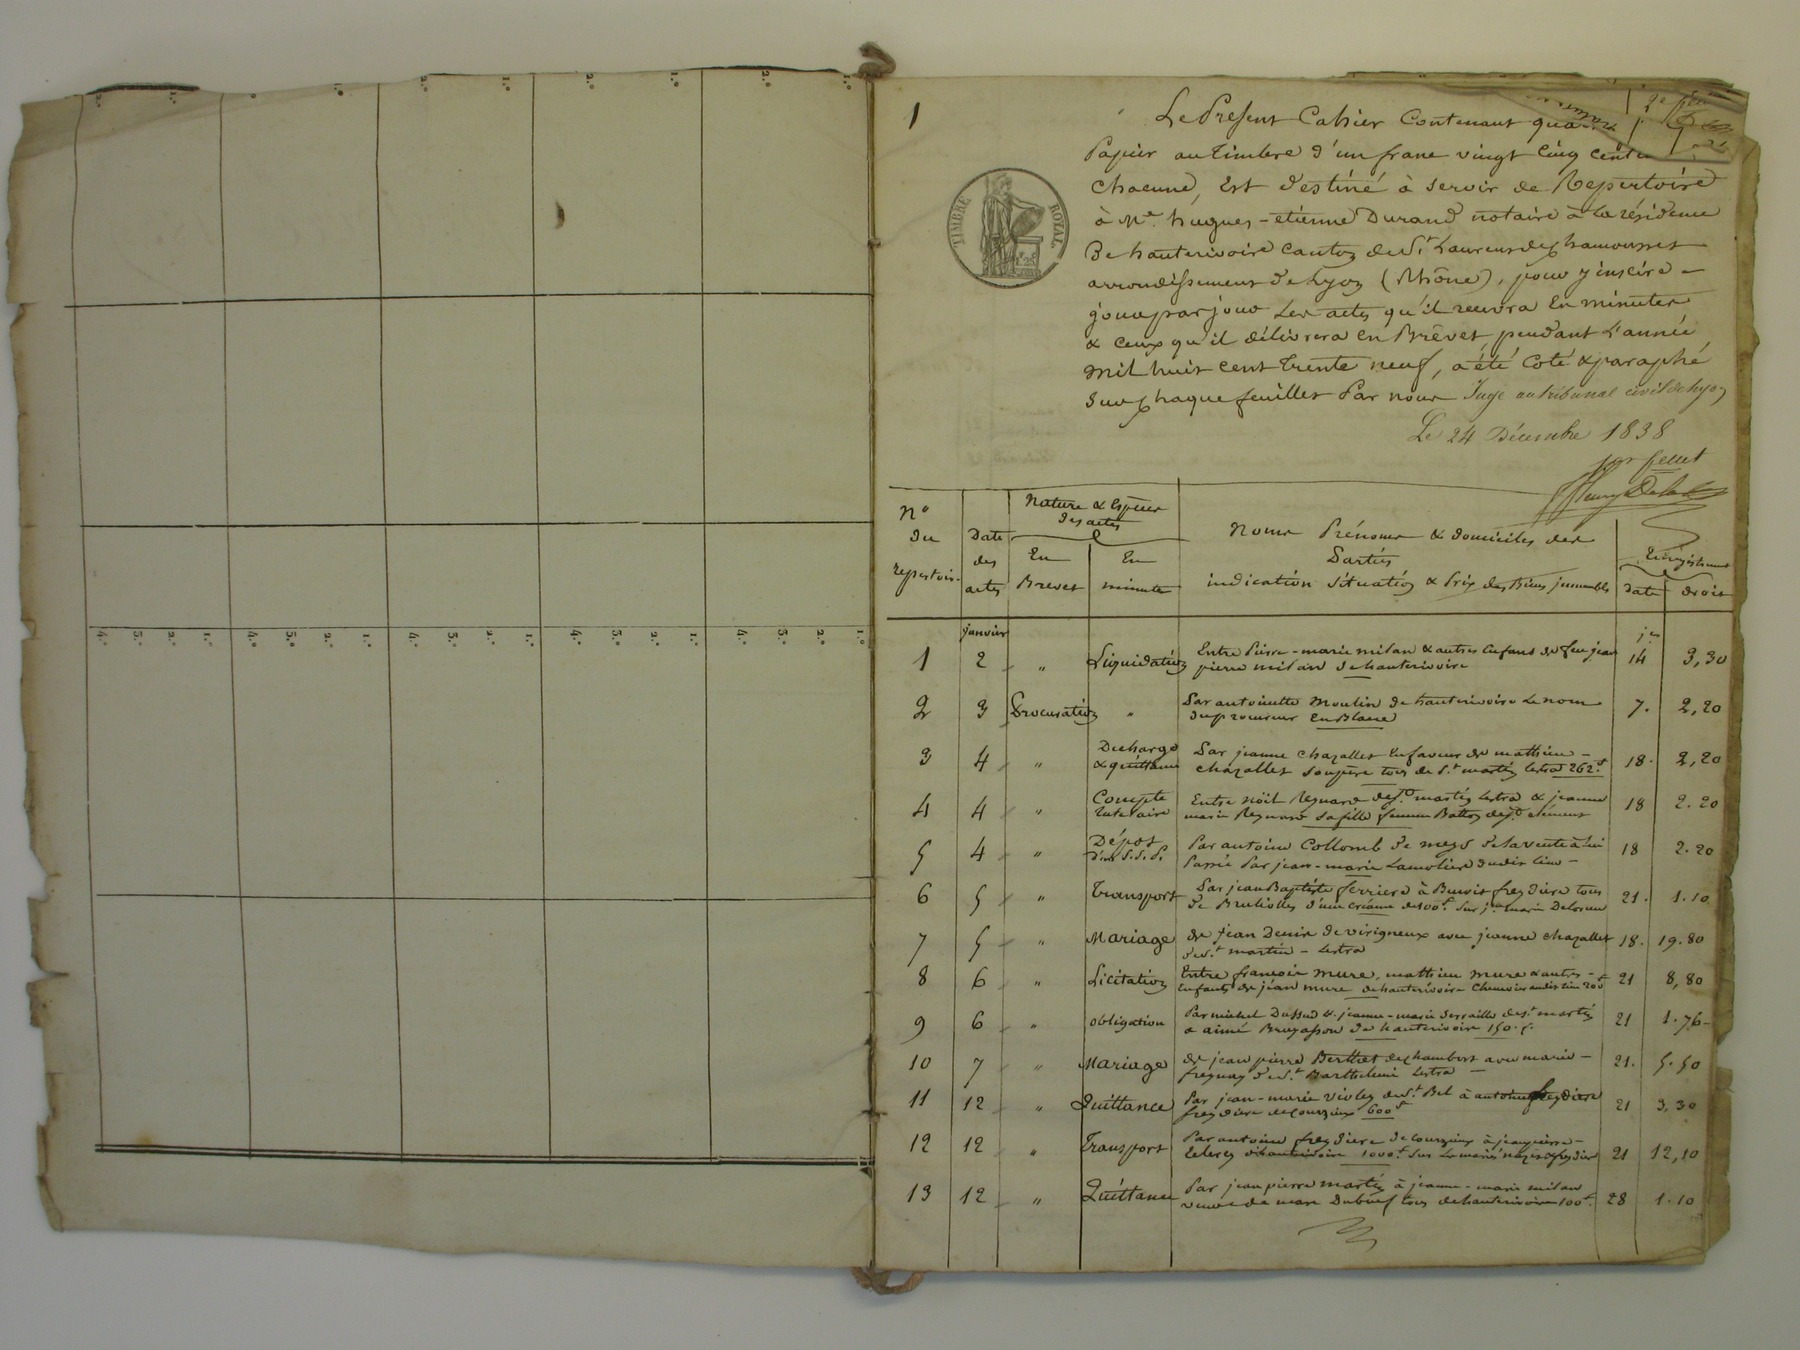 1
Le Present Cahier Contenant qua
Papier au Timbre d'un franc vingt cinq cent
chacune, Est destiné à servir de Repertoire
à Me. hugues-etienne Durand notaire à la résidence
De hauterivoire canton de St Laurent de chamousset
arrondissement de Lyon (Rhône), pour y inscire
jour par jour Les actes qu'il recevra En minutes
& ceux qu'il délivrera en Brêvet, pendant L'année
mil huit cent trente neuf, a été Coté & paraphé
sur chaque feuillet Par nous Juge au tribunal civil de Lyon
Le 24 Décembre 1838
TIMBRE ROYAL
1er feuillet
No du repertoire
Date des actes
Nature & Espèces des actes
En Brevet
En minute
Noms Prénoms & domiciles des
Parties
indication situation & Prix des Biens immeubles
Enregistrement
date droit
janvier jer
1 2 " Liquidation Entre Pierre-marie milan & autres Enfans de feu jean 14 3,30
pierre milan de hauterivoire
2 3 Procuration " Par antoinette Moulin de hauterivoire Le nom 7. 2,20
du procureur En Blanc
3 4 " Decharge & quittance Par jeanne chazallet En faveur de mathieu 18. 2,20
chazallet son père tous de St martin Lestra 262f
4 4 " Compte Tutelaire Entre nöel Reynard de St martin Lestra & jeanne 18 2.20
marie Reynard sa fille femme de St clément
5 4 " Dépot d'un S.S.P. Par antoine Collomb de meys de la vente à lui 18 2.20
Passée Par jean-marie Lamolière dudit lieu
6 5 " Transport Par jean Baptiste ferriere à Benoit freydiere tous 21. 1.10
de Brulioles d'une créance de 100f. sur marie
7 5 " Mariage de jean Denis de virigneux avec jeanne chazallet 18. 19.80
de St martin-Lestra
8 6 " Licitation Entre françois mure, mathieu mure & autres 21 8,80
Enfants de jean mure de hauterivoire
9 6 " obligation Par michel & jeanne-marie de St martin 21 1.76
a aimé Bruyasson de hauterivoire 150f.
10 7 " Mariage de jean pierre Berthet de chambost avec marie 21. 5.50
de St Barthelemi Lestra
11 12 " Quittance Par jean-marie de St Bel à antoine freydiere 21 3,30
freydiere de Courzieux 600f
12 12 " Transport Par antoine freydiere de Courzieux à jean pierre 21 12,10
hauterivoire 1000f sur
13 12 " Quittance Par jean pierre martin à jeanne-marie milan 28 1.10
veuve de marc tous de hauterivoire 100f.
4.° 3.° 2.° 1.° 4.° 3.° 2.° 1.° 4.° 3.° 2.° 1.° 4.° 3.° 2.° 1.° 4.° 3.° 2.° 1.°